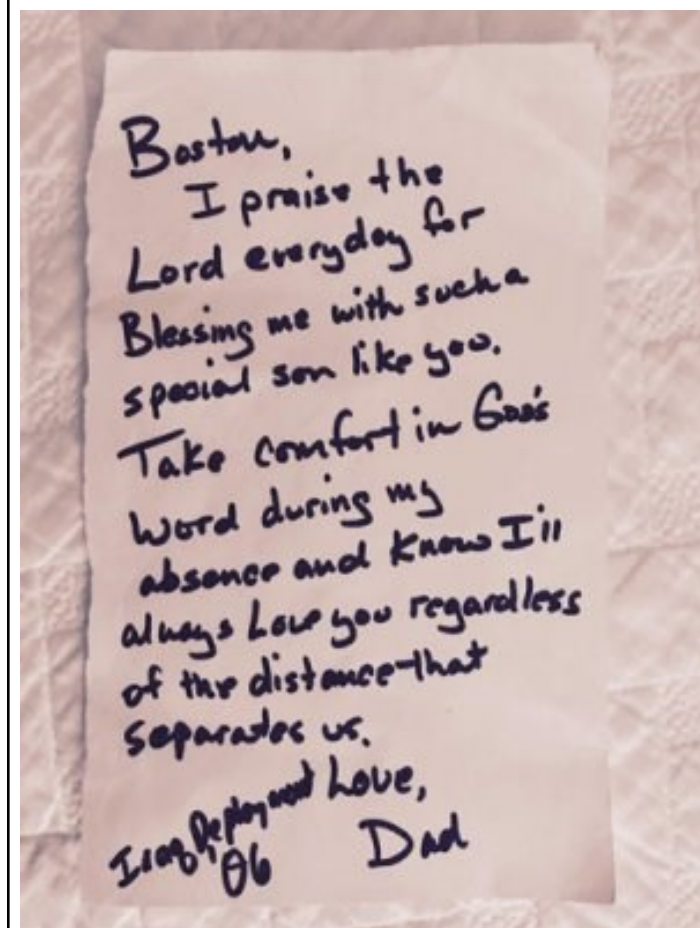 Boston,
I praise the
Lord everyday for
Blessing me with such a
special son like you.
Take comfort in God's
Word during my
absence and know I'll
always Love you regardless
of the distance that
separates us.
Love,
Dad
Iraq Deployment
06